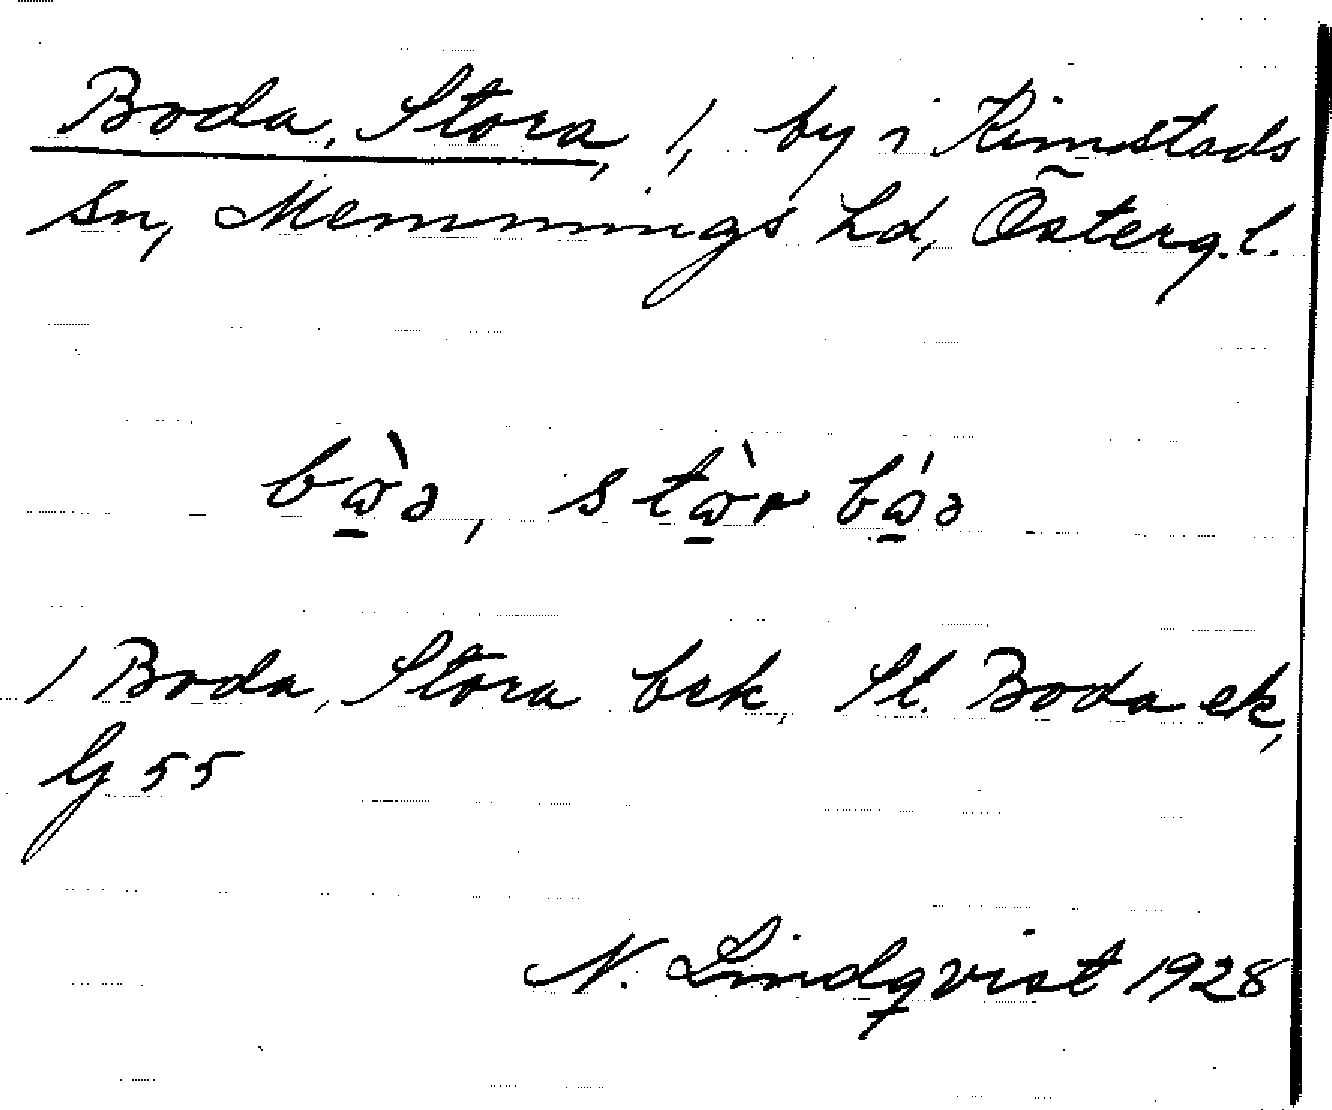 Boda, Stora, 1, by i Kimstads
Sn, Memmings hd, Österg. l.
1 Boda, Stora bek, St. Boda ek,
G 55
N. Lindqvist 1928